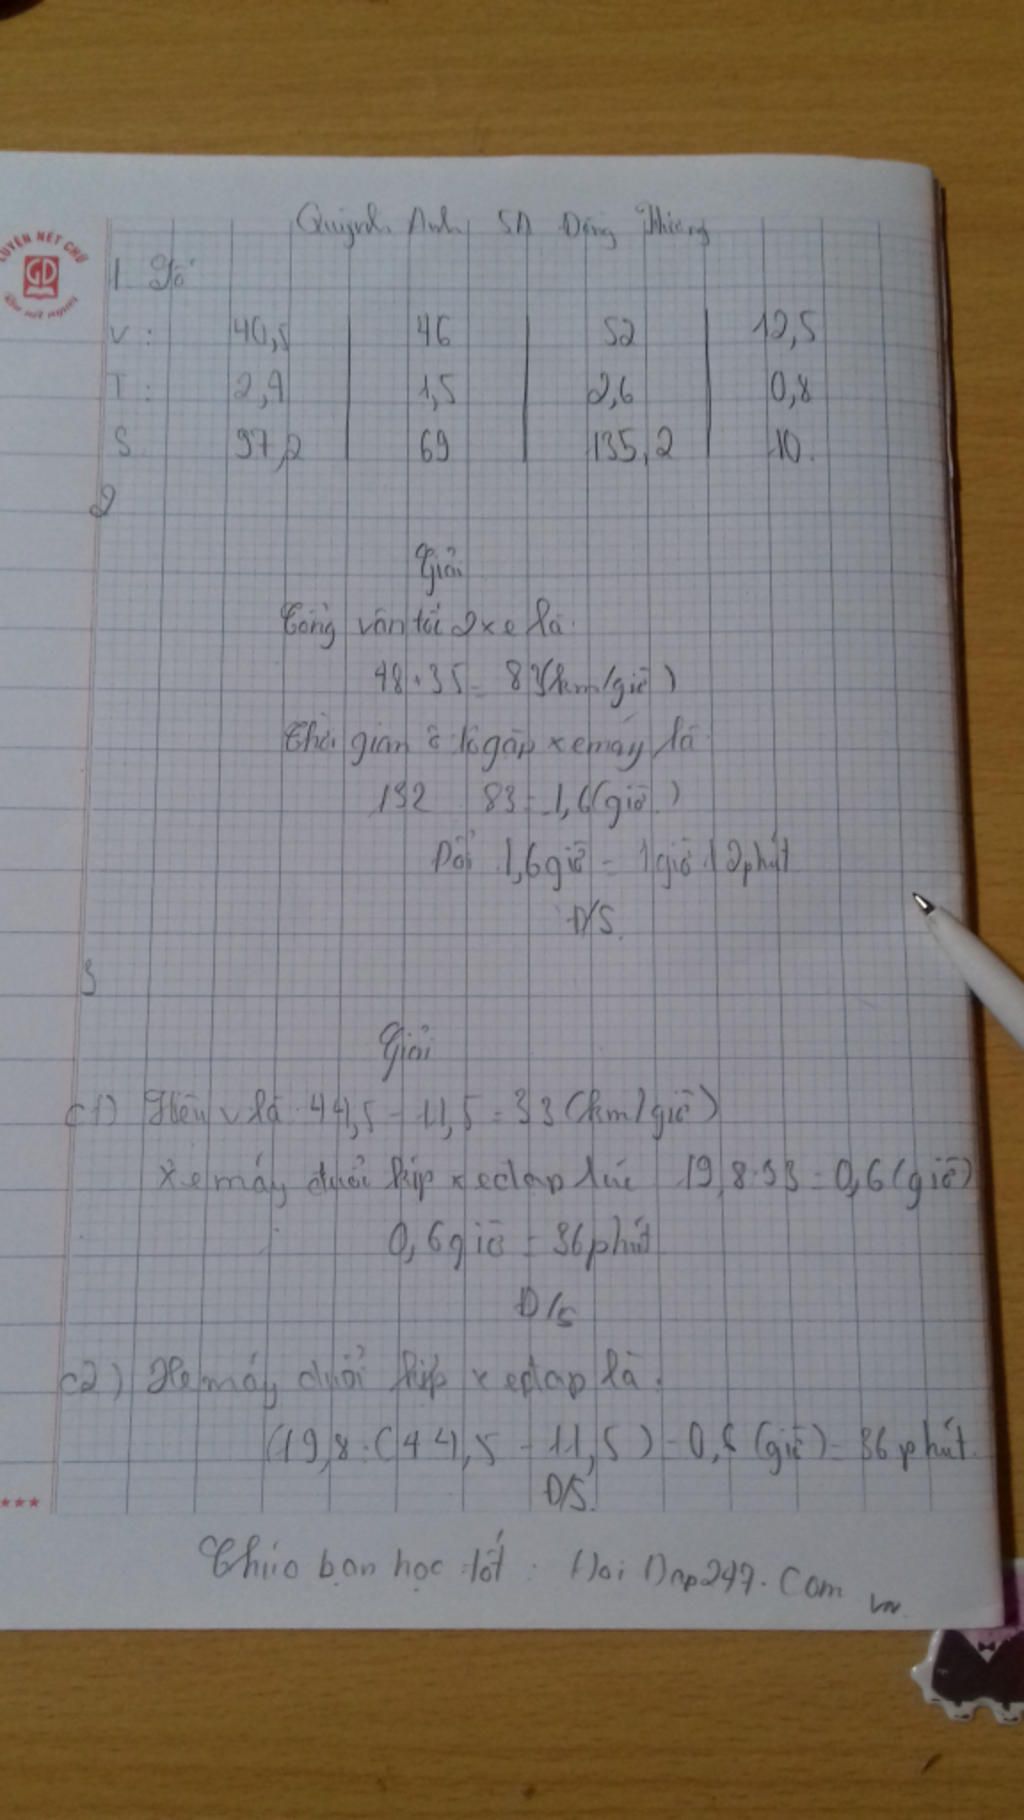 Quỳnh Anh 5A Đông Phương
LUYỆN NÉT CHỮ
GD
1. Số
V: 40,5 46 52 12,5
T: 2,4 1,5 2,6 0,8
S 97,2 69 135,2 10.
2
Giải
Tổng vận tốc 2 xe là:
48 + 35 = 83 (km/giờ)
Thời gian ô tô gặp xe máy là
132 83 = 1,6 (giờ)
Đổi 1,6 giờ = 1 giờ 12 phút
Đ/S.
3
Giải
c1) Hiệu v là 44,5 - 11,5 = 33 (km/giờ)
Xe máy đuổi kịp xe đạp lúc 19,8 : 33 = 0,6 (giờ)
0,6 giờ = 36 phút
Đ/S
c2) Xe máy đuổi kịp xe đạp là.
(19,8 : (44,5 - 11,5) = 0,6 (giờ) = 36 phút.
Đ/S.
***
Chúc bạn học tốt. Hoi Dap247.Com
vn.